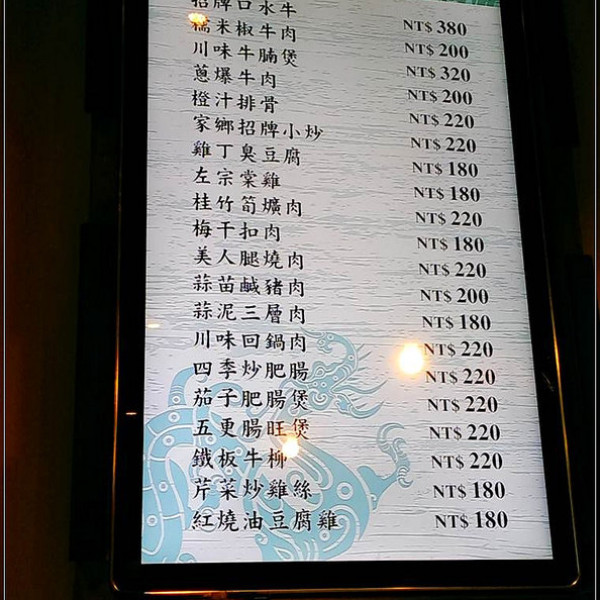 招牌口水牛 NT$ 380
糯米椒牛肉 NT$ 200
川味牛腩煲 NT$ 320
蔥爆牛肉 NT$ 200
橙汁排骨 NT$ 220
家鄉招牌小炒 NT$ 220
雞丁臭豆腐 NT$ 180
左宗棠雞 NT$ 180
桂竹筍爌肉 NT$ 220
梅干扣肉 NT$ 180
美人腿燒肉 NT$ 220
蒜苗鹹豬肉 NT$ 200
蒜泥三層肉 NT$ 180
川味回鍋肉 NT$ 220
四季炒肥腸 NT$ 220
茄子肥腸煲 NT$ 220
五更腸旺煲 NT$ 220
鐵板牛柳 NT$ 220
芹菜炒雞絲 NT$ 180
紅燒油豆腐雞 NT$ 180